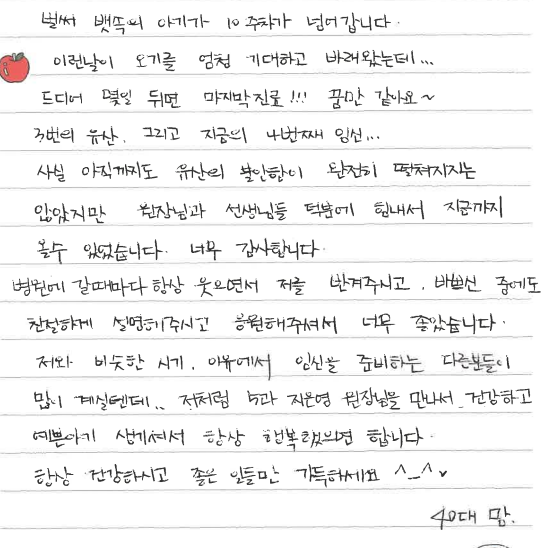 벌써 뱃속의 아기가 10주차가 넘어갑니다.
이런날이 오기를 엄청 기대하고 바래왔는데...
드디어 몇일 뒤면 마지막진료!!! 꿈만 같아요~
3번의 유산. 그리고 지금의 4번째 임신...
사실 아직까지도 유산의 불안함이 완전히 떨쳐지지는
않았지만 원장님과 선생님들 덕분에 힘내서 지금까지
올수 있었습니다. 너무 감사합니다.
병원에 갈때마다 항상 웃으면서 저를 반겨주시고, 바쁘신 중에도
친절하게 설명해주시고 응원해주셔서 너무 좋았습니다.
저와 비슷한 시기, 이유에서 임신을 준비하는 다른분들이
많이 계실텐데.. 저처럼 5과 지은영 원장님을 만나서 건강하고
예쁜아기 생기셔서 항상 행복했으면 합니다.
항상 건강하시고 좋은 일들만 가득하세요 ^_^♥
40대 맘.